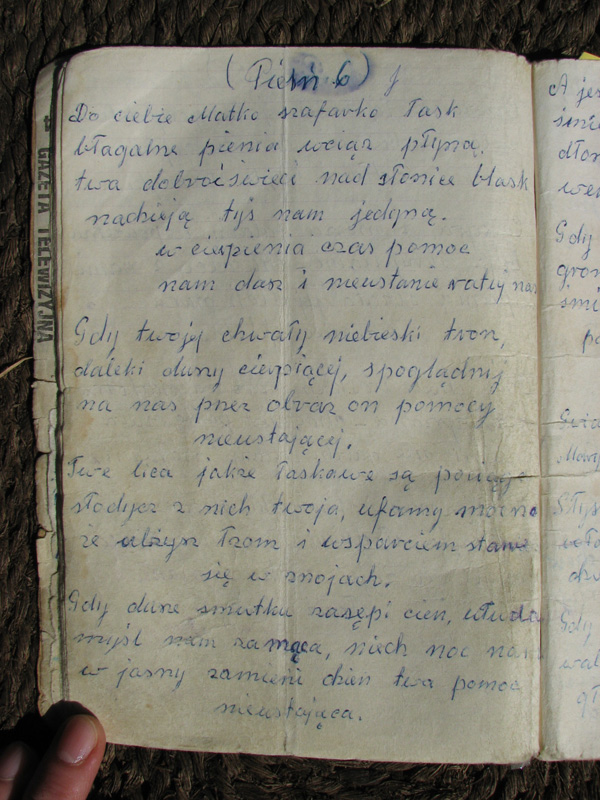 (Pieśń 6)
Do ciebie Matko szafarko łask
błagalne pienia wciąż płyną,
twa dobroć świeci nad słońce blask
nadzieją tyś nam jedyną.
w cierpienia czas pomoc
nam dasz i nieustanie ratuj nas
Gdy twojej chwały niebieski tron,
daleki duszy cierpiącej, spoglądnij
na nas przez obraz on pomocy
nieustającej.
Twe lica jakże łaskawe są
słodycz z nich twoja, ufamy mocno
że ulżysz łzom i wsparciem
się w znojach.
Gdy duszę smutku zasępi cień,
myśl nam zamąca, niech noc nam
w jasny zamieni dzień twa pomoc
nieustająca.
GAZETA TELEWIZYJNA
A
dłoń
Gdy
Gdy